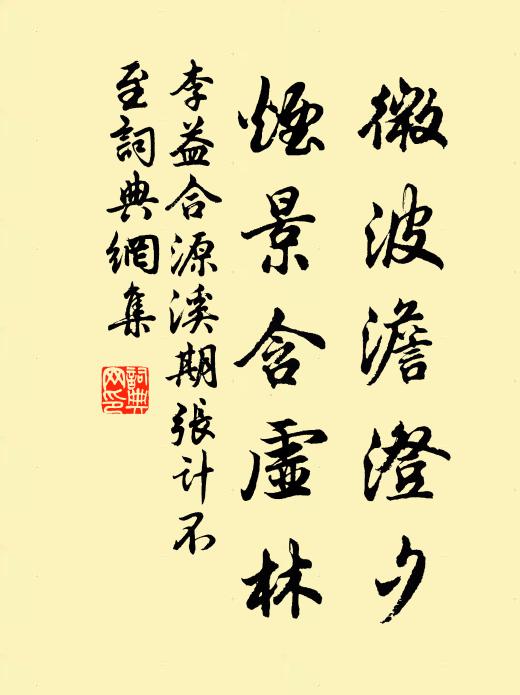 微波澹澄夕
煙景含虛林
李益合源溪期張計不
至詞典網集
詞典
网印